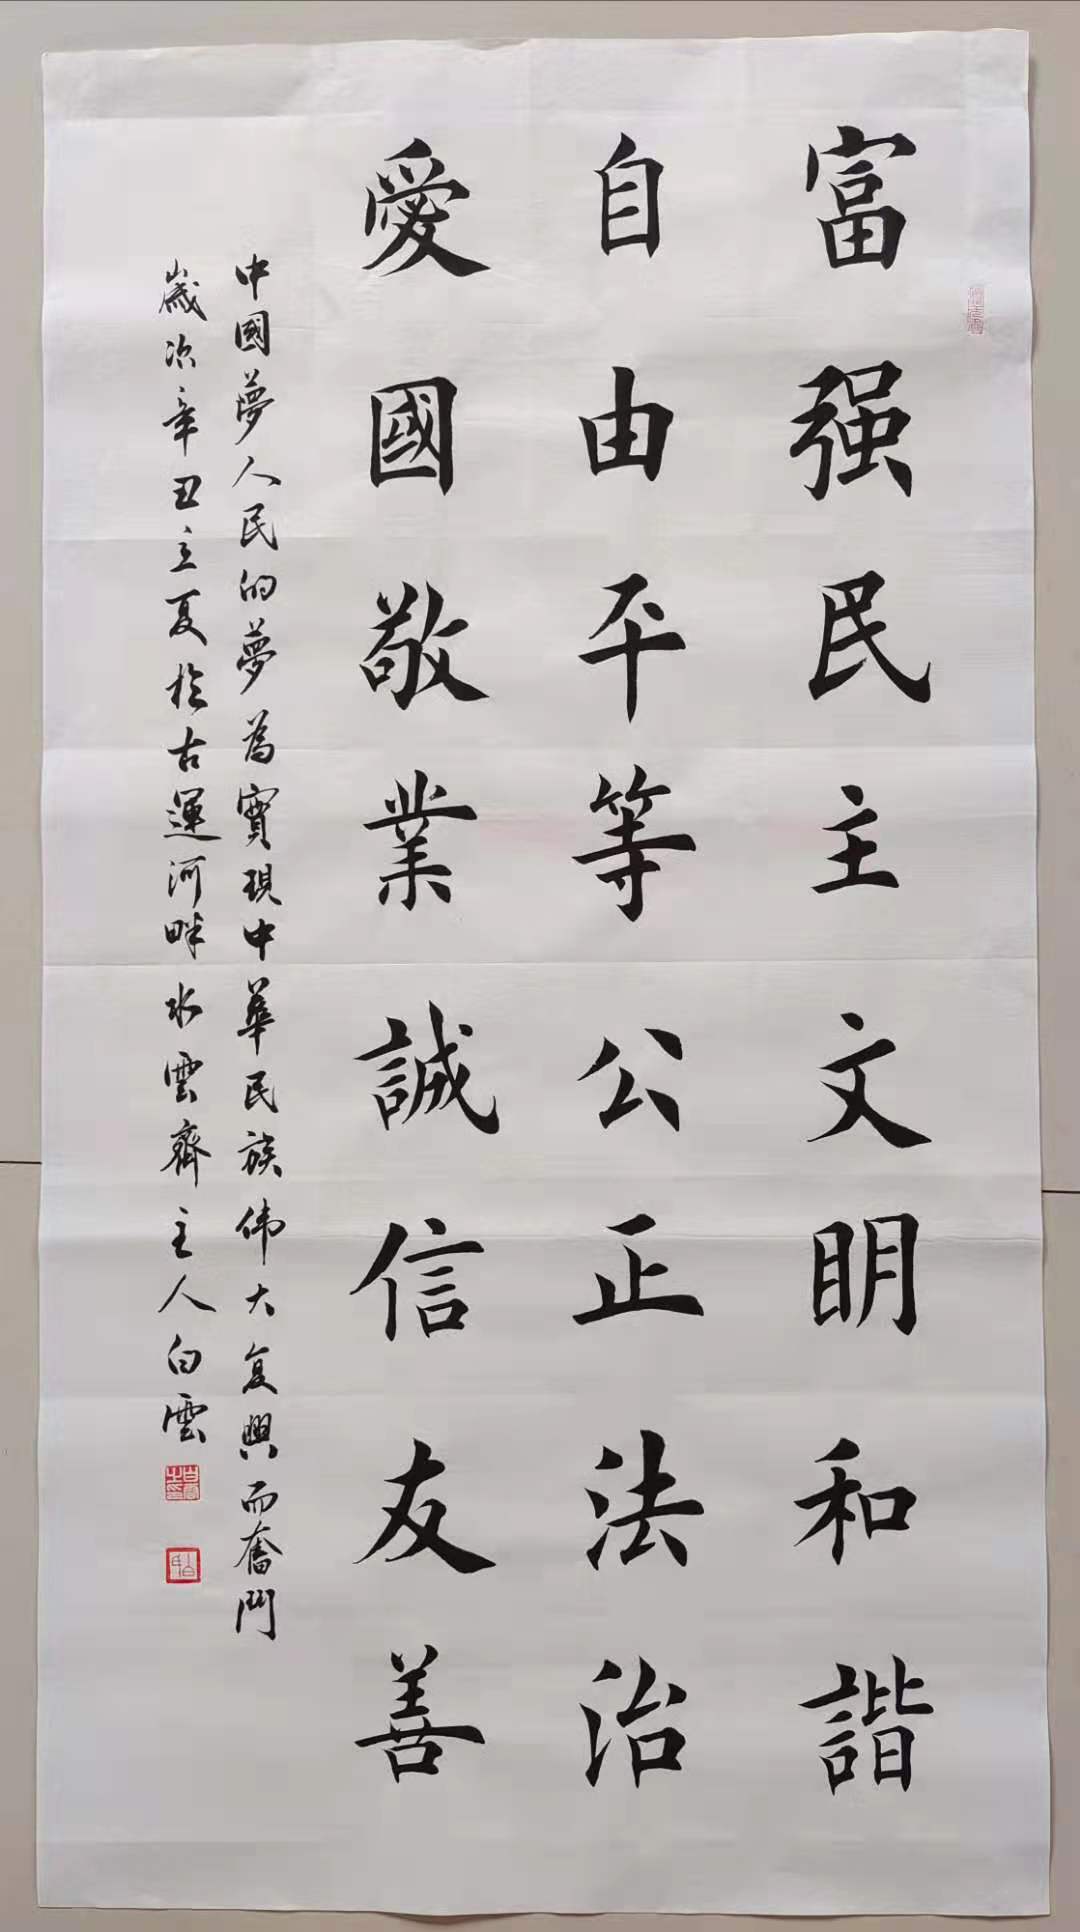 富强民主文明和諧
自由平等公正法治
愛國敬業誠信友善
中國夢人民的夢為實現中華民族伟大复興而奮鬥
歲次辛丑立夏於古運河畔水雲齋主人白雲